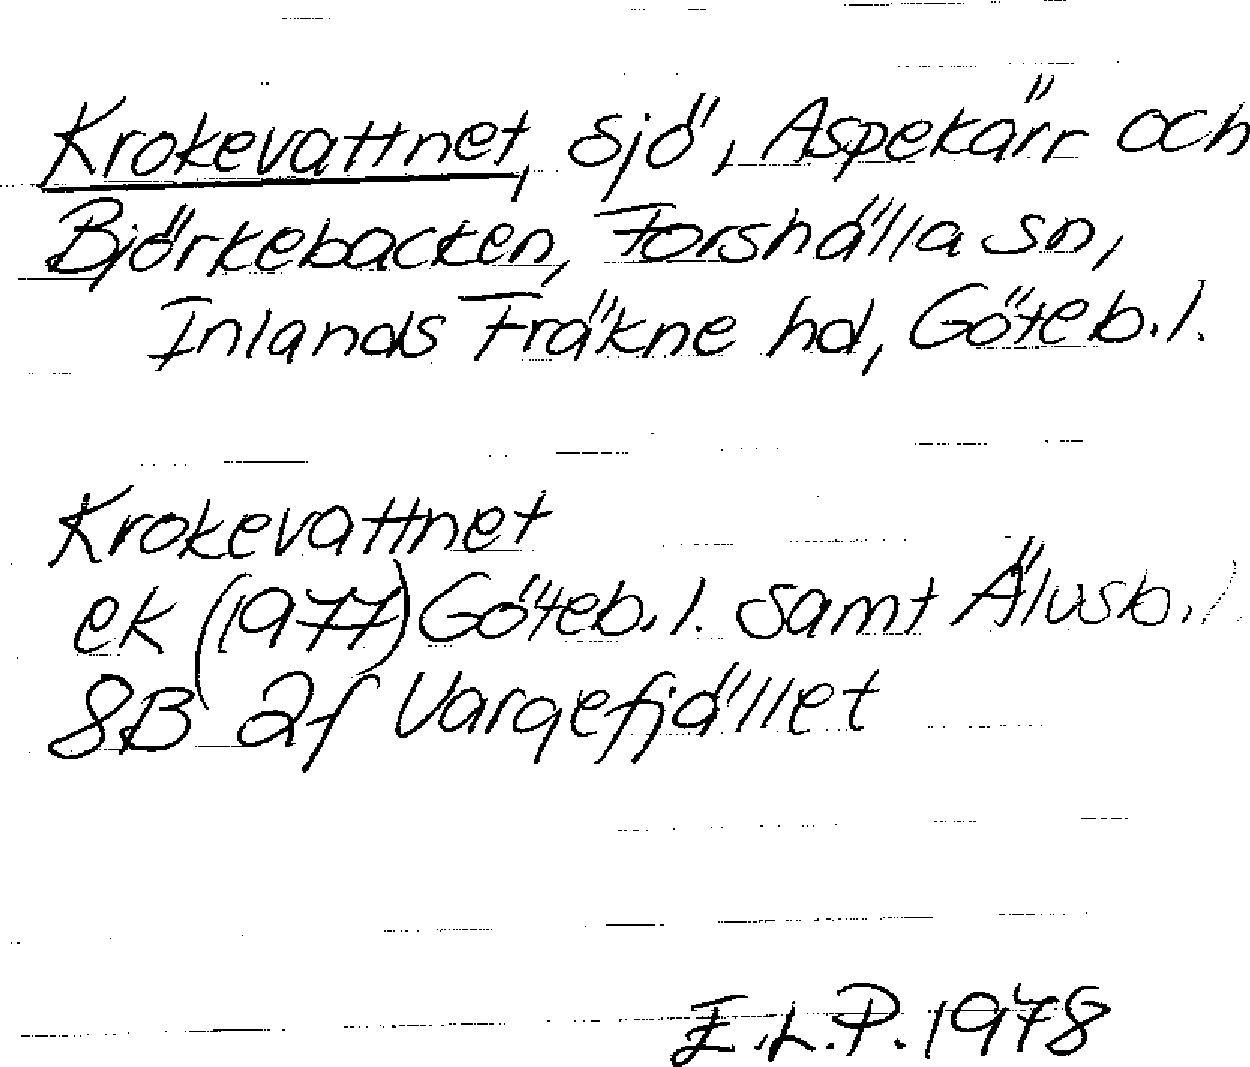 Krokevattnet, sjö, Aspekärr och
Björkebacken, Forshälla sn,
Inlands Fräkne hd, Göteb.l.
Krokevattnet
ek (1977) Göteb.l. samt Älvsb.l
8B 2f Vargefjället
E.L.P. 1978